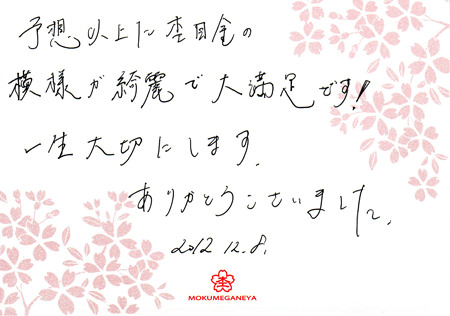 予想以上に杢目金の
模様が綺麗で大満足です!
一生大切にします.
ありがとうございました.
2012 12.8.
MOKUMEGANEYA